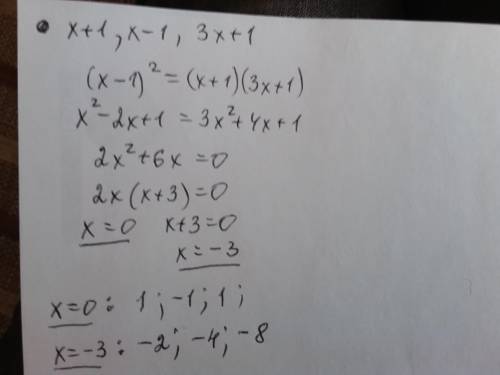 • x+1, x-1, 3x+1
(x-1)² = (x+1)(3x+1)
x²-2x+1 = 3x²+4x+1
2x²+6x=0
2x(x+3)=0
x=0 x+3=0
x=-3
x=0: 1; -1; 1;
x=-3: -2; -4; -8